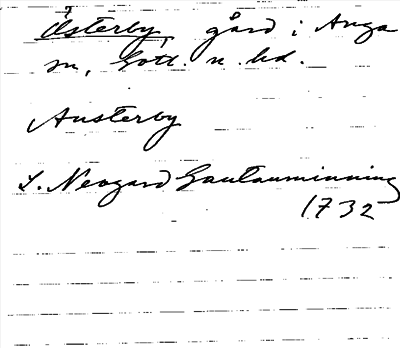 Österby, gård i Anga
sn, Gotl. n. hd.
Austerby
L. Neogard Gautauminning
1732